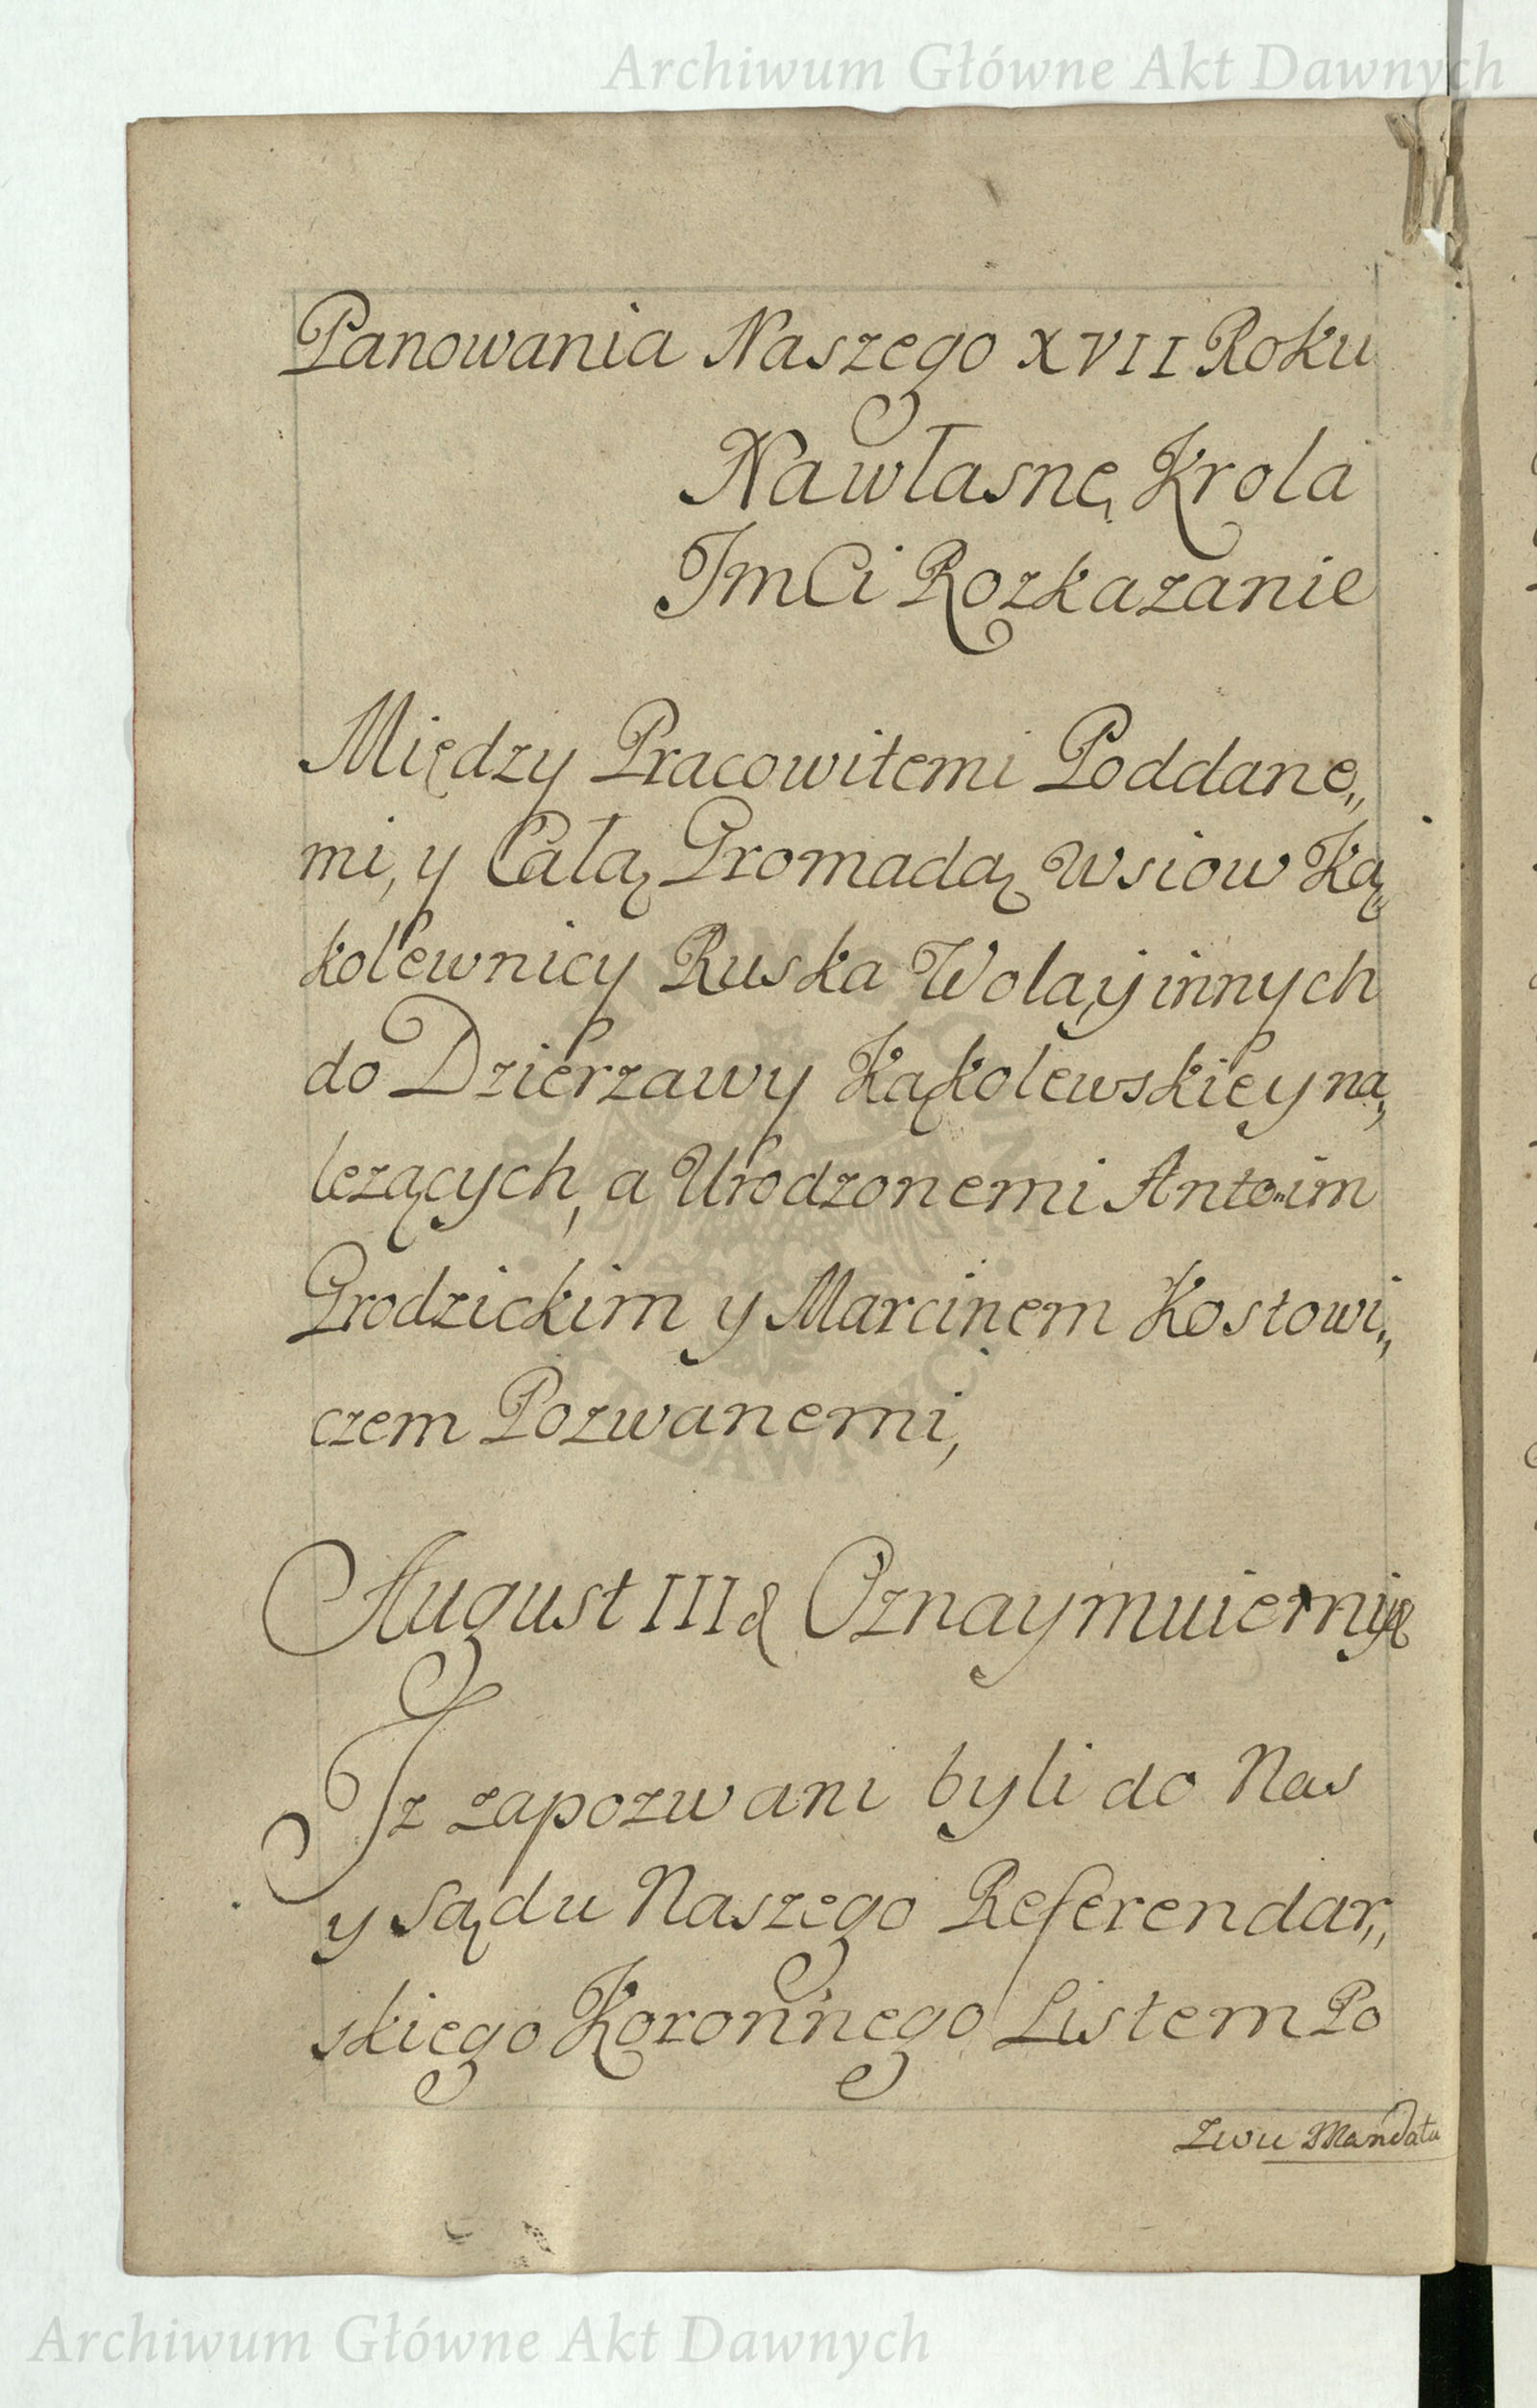 Archiwum Główne Akt Dawnych
Panowania Naszego XVII Roku
Nawłasnę Krola
JmCi Rozkazanie
Między Pracowitemi Poddane„
mi, y Całą Gromadą Wsiow Ką„
kolewnicy Ruska Wola, y innych
do Dzierzawy Kąkolewskiey na„
lezących, a Urodzonemi Antonim
Grodzickim y Marcinem Kostowi„
czem Pozwanemi,
August III & Oznaymuiemy
Jz zapozwani byli do Nas
y Sądu Naszego Referendar„
skiego Koronnego Listem Po
zwu Mandatu
Archiwum Główne Akt Dawnych